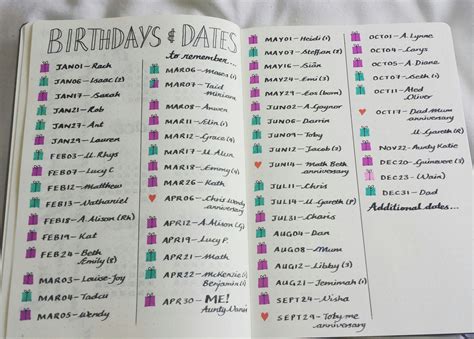 BIRTHDAYS & DATES
to remember...
JAN01 - Rach
JAN06 - Isaac (2)
JAN17 - Sarah
JAN21 - Rob
JAN27 - Ant
JAN29 - Lauren
FEB03 - U. Rhys
FEB07 - Lucy C
FEB12 - Matthew
FEB13 - Nathaniel
FEB18 - A. Alison (Rh)
FEB19 - Kat
FEB24 - Beth
Emily (8)
MAR03 - Louise-Joy
MAR04 - Tadcu
MAR05 - Wendy
MAR06 - Mason (1)
MAR07 - Taid
Miriam
MAR08 - Anwen
MAR11 - Elin (1)
MAR12 - Grace (4)
MAR17 - U. Alun
MAR18 - Emma
MAR26 - Kath
APR06 - Chris Wendy
anniversary
APR12 - A. Alison (G)
APR19 - Lucy P.
APR21 - Matth
APR22 - McKenzie (1)
Benjamin (1)
APR30 - ME!
Aunty Nans
MAY01 - Heidi (1)
MAY07 - Steffan (2)
MAY16 - Siân
MAY24 - Emi (3)
MAY29 - Eos (bam)
JUN02 - A. Gaynor
JUN06 - Darrin
JUN09 - Toby
JUN12 - Jacob (2)
JUN14 - Math Beth
anniversary
JUL11 - Chris
JUL14 - Gareth
JUL31 - Chris
AUG04 - Dan
AUG08 - Mum
AUG12 - Libby (3)
AUG21 - Jemimah (1)
SEPT24 - Nisha
SEPT29 - Toby me
anniversary
OCT01 - A. Lynne
OCT04 - Carys
OCT05 - A. Diane
OCT07 - Beth (1)
OCT11 - Aled
Oliver
OCT17 - Dad Mum
anniversary
U. Gareth (R)
NOV22 - Aunty Katie
DEC20 - Guinevere (3)
DEC23 - (Nain)
DEC31 - Dad
Additional dates...